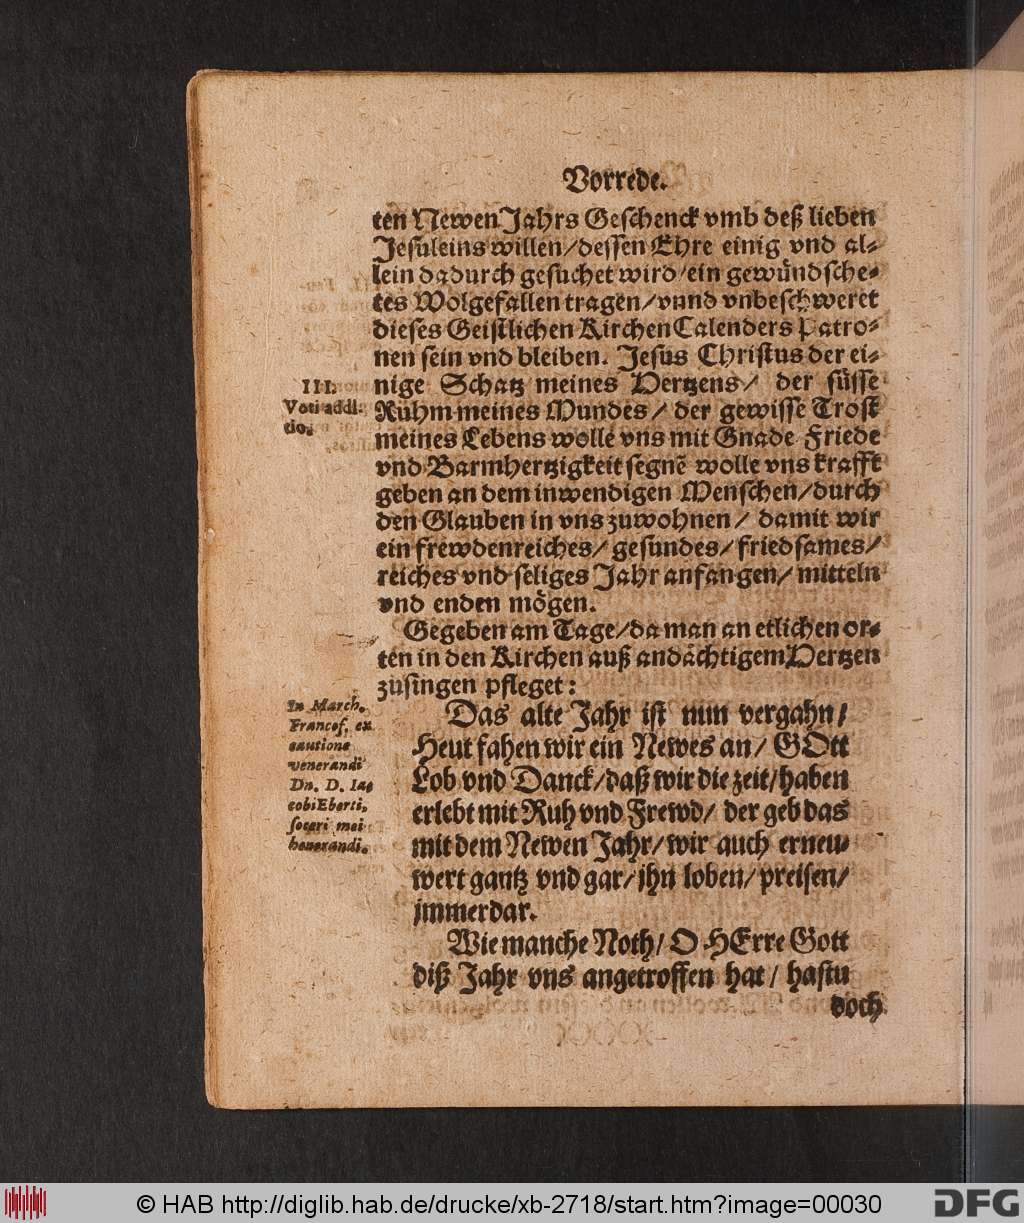 Vorrede.
ten Newen Jahrs Geschenck vmb deß lieben
Jesuleins willen/dessen Ehre einig vnd al-
lein dadurch gesuchet wird/ein gewündsche-
tes Wolgefallen tragen/vnnd vnbeschweret
dieses Geistlichen KirchenCalenders Patro-
nen sein vnd bleiben. Jesus Christus der ei-
III.
Voti addi-
tio.
nige Schatz meines Hertzens/ der süsse
Ruhm meines Mundes/ der gewisse Trost
meines Lebens wolle vns mit Gnade Friede
vnd Barmhertzigkeit segnē wolle vns krafft
geben an dem inwendigen Menschen/durch
den Glauben in vns zuwohnen/ damit wir
ein frewdenreiches/gesundes/friedsames/
reiches vnd seliges Jahr anfangen/ mitteln
vnd enden mögen.
Gegeben am Tage/da man an etlichen or-
ten in den Kirchen auß andächtigem Hertzen
zusingen pfleget:
In March.
Francof. ex
cautione
venerandi
Dn. D. Ia-
cobi Eberti,
soceri mei
honorandi.
Das alte Jahr ist nun vergahn/
Heut fahen wir ein Newes an/ GOtt
Lob vnd Danck/daß wir die zeit/haben
erlebt mit Ruh vnd Frewd/ der geb das
mit dem Newen Jahr/wir auch erneu-
wert gantz vnd gar/jhn loben/preisen/
jmmerdar.
Wie manche Noth/ O HErre Gott
diß Jahr vns angetroffen hat/ hastu
doch
© HAB http://diglib.hab.de/drucke/xb-2718/start.htm?image=00030
DFG